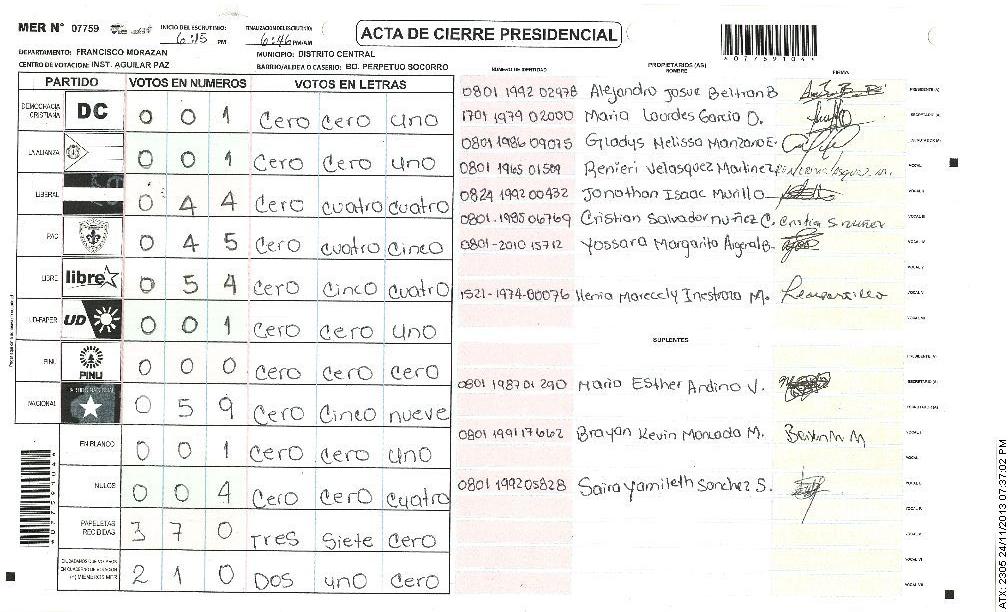 MER N° 07759 INICIO DEL ESCRUTINIO: 6:15 PM FINALIZACION DEL ESCRUTINIO: 6:46 PM/AM
ACTA DE CIERRE PRESIDENCIAL
DEPARTAMENTO: FRANCISCO MORAZAN MUNICIPIO: DISTRITO CENTRAL
CENTRO DE VOTACION: INST. AGUILAR PAZ BARRIO/ALDEA O CASERIO: BO. PERPETUO SOCORRO
PARTIDO VOTOS EN NUMEROS VOTOS EN LETRAS
DEMOCRACIA CRISTIANA DC 0 0 1 Cero cero uno
LA ALIANZA 0 0 1 Cero Cero uno
LIBERAL 0 4 4 Cero cuatro cuatro
PAC 0 4 5 Cero cuatro cinco
LIBRE libre 0 5 4 Cero Cinco cuatro
UD-FAPER UD 0 0 1 Cero Cero uno
PINU PINU 0 0 0 Cero Cero cero
NACIONAL 0 5 9 Cero Cinco nueve
EN BLANCO 0 0 1 Cero Cero uno
NULOS 0 0 4 Cero Cero cuatro
PAPELETAS RECIBIDAS 3 7 0 Tres Siete Cero
2 1 0 Dos uno Cero
NUMERO DE IDENTIDAD PROPIETARIOS (AS) NOMBRE FIRMA
0801 1992 02978 Alejandro Josue Beltran B PRESIDENTE (A)
1701 1979 02000 Maria Lourdes Garcia O. SECRETARIO (A)
0801 1986 09075 Gladys Melissa Manzano E.
0801 1965 01589 Renieri Velasquez Martinez VOCAL I
0824 1992 00432 Jonathan Isaac Murillo VOCAL II
0801-1985 06769 Cristian Salvador nuñez C. Cristian S. nuñez VOCAL III
0801-2010 15712 Yossara Margarita VOCAL IV
VOCAL V
1521-1974-00076 Inestroza M.
SUPLENTES
PRESIDENTE (A)
0801 1987 01290 Maria Esther Andino V. SECRETARIO (A)
0801 1991 17662 Brayan Kevin Moncada M.
0801 1992 05828 Saira Yamileth Sanchez S.
07759104
ATX: 2305 24/11/2013 07:37:02 PM